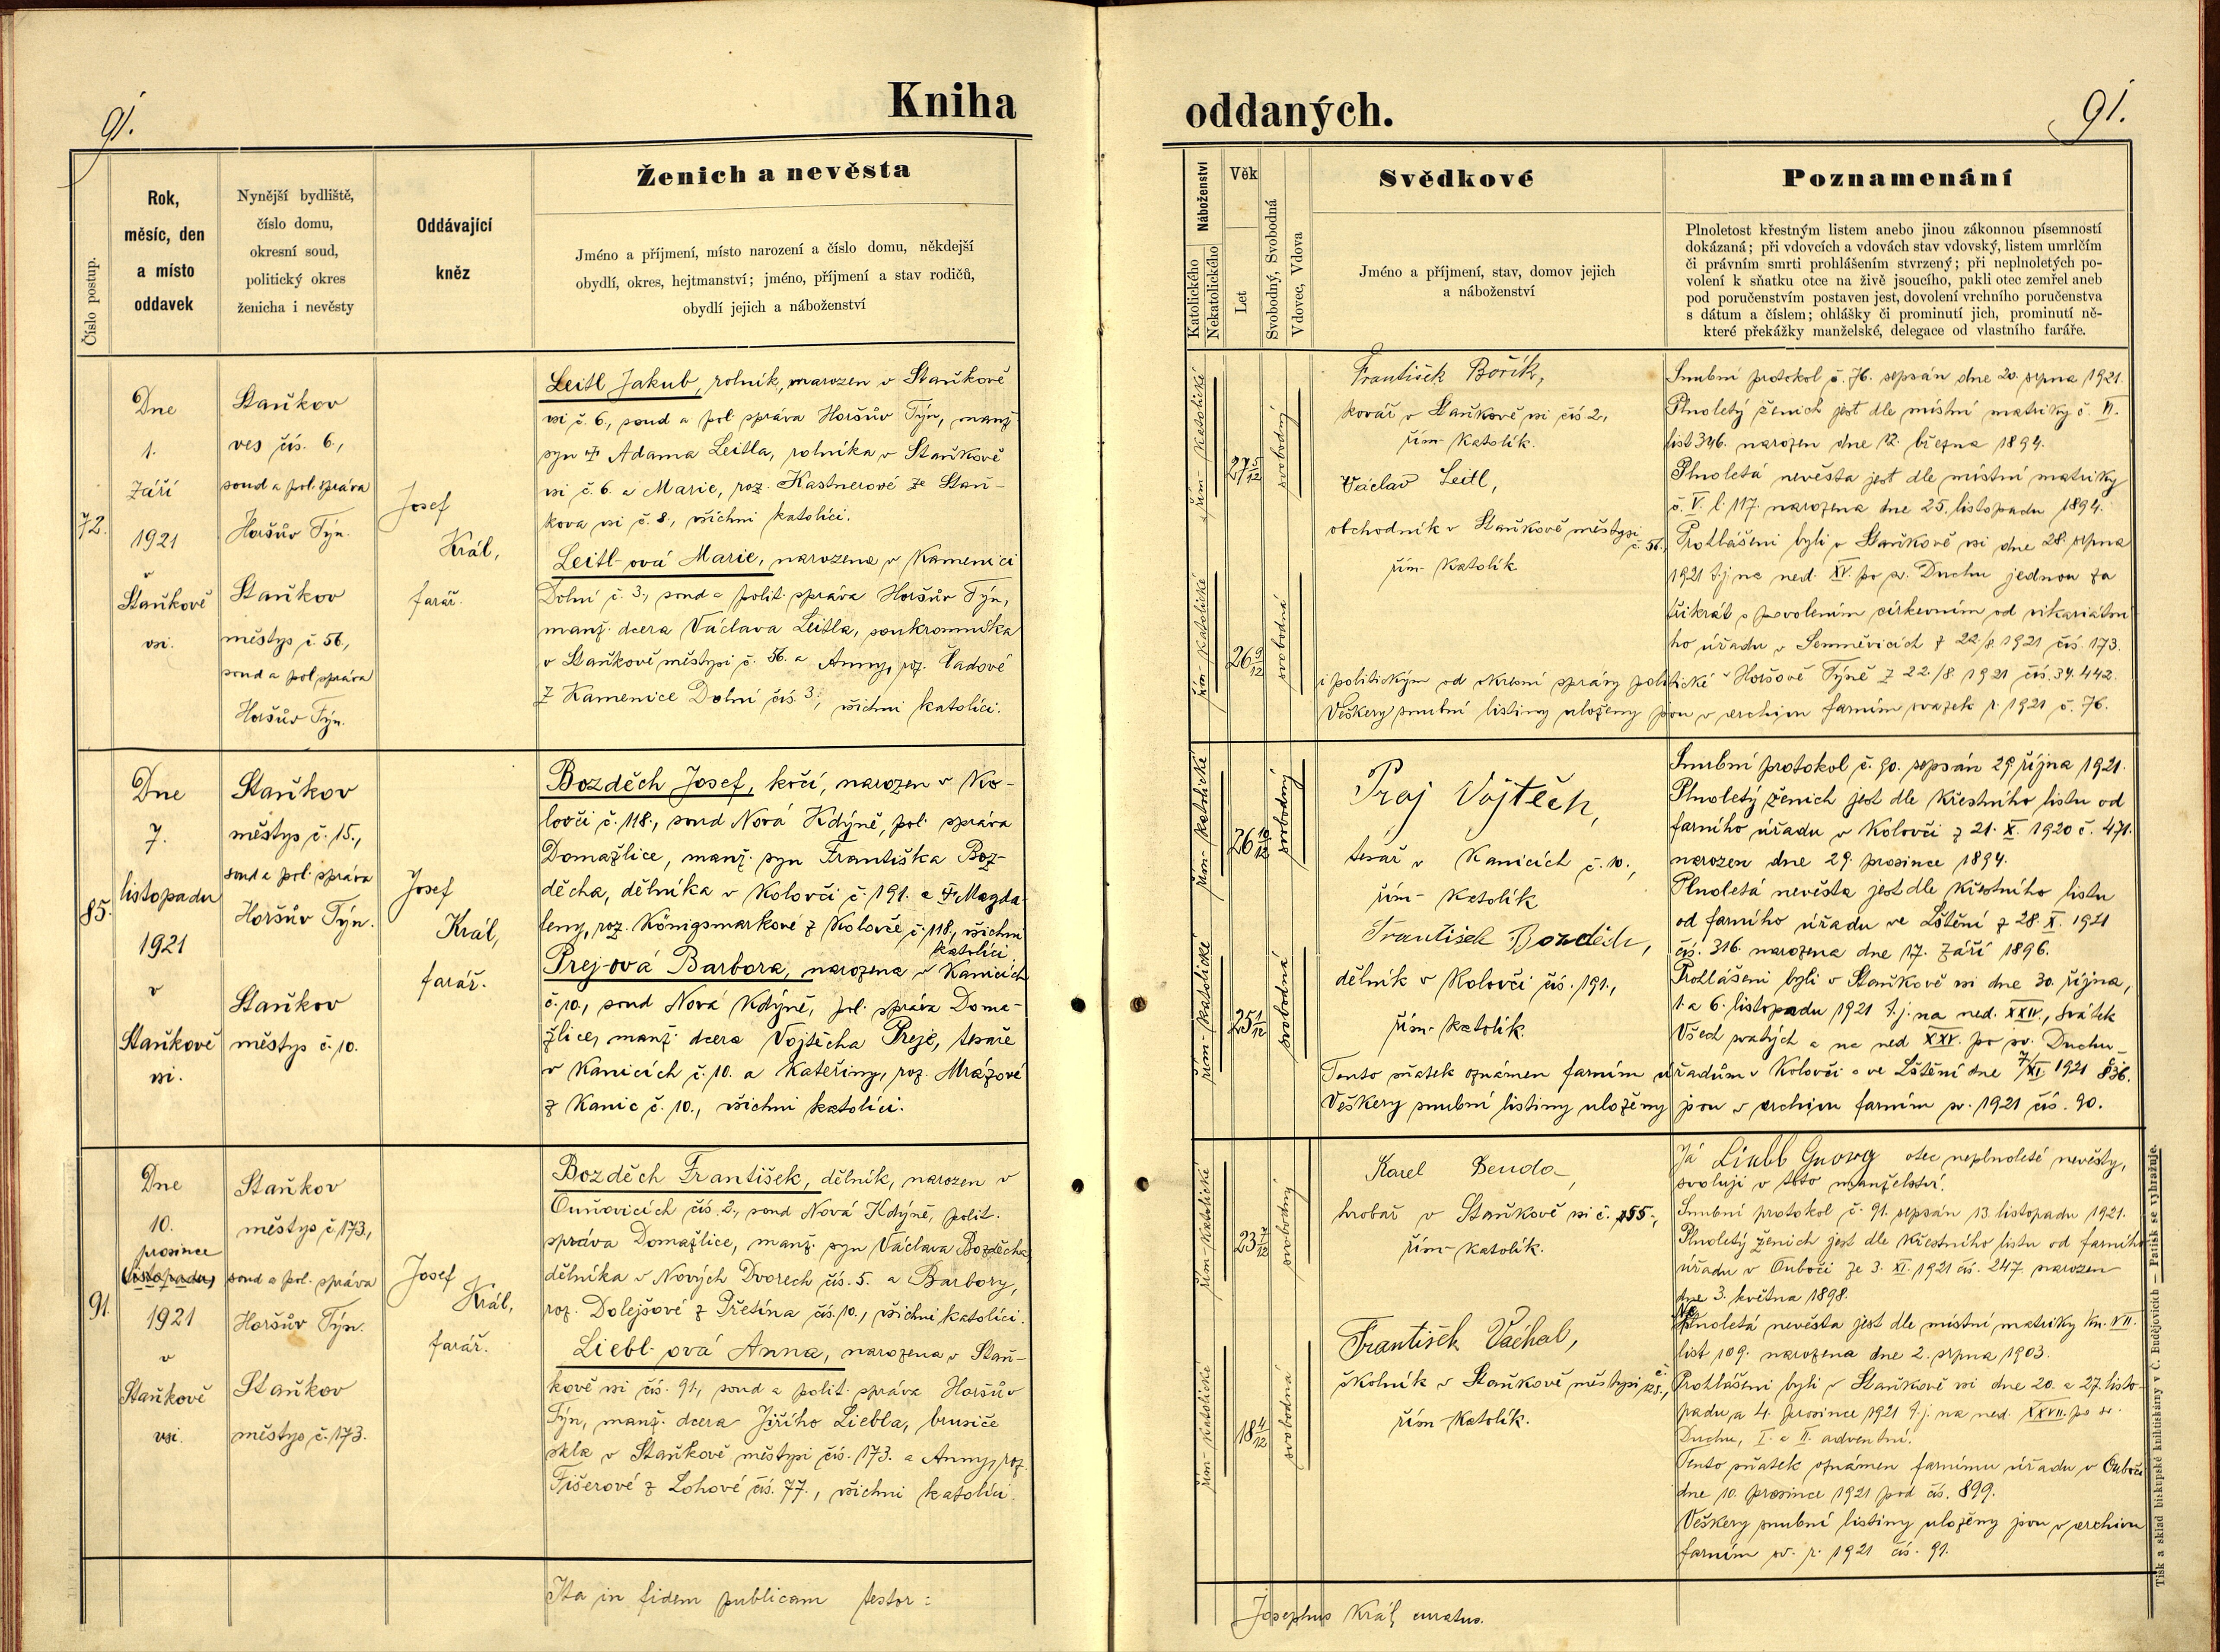 91.
Kniha
oddaných.
91.
Číslo postup.
Rok,
měsíc, den
a místo
oddavek
Nynější bydliště,
číslo domu,
okresní soud,
politický okres
ženicha i nevěsty
Oddávající
kněz
Ženich a nevěsta
Jméno a příjmení, místo narození a číslo domu, někdejší
obydlí, okres, hejtmanství; jméno, příjmení a stav rodičů,
obydlí jejich a náboženství
Náboženství
Katolického
Nekatolického
Věk
Let
Svobodný, Svobodná
Vdovec, Vdova
Svědkové
Jméno a příjmení, stav, domov jejich
a náboženství
Poznamenání
Plnoletost křestným listem anebo jinou zákonnou písemností
dokázaná; při vdovcích a vdovách stav vdovský, listem umrlčím
či právním smrti prohlášením stvrzený; při neplnoletých po-
volení k sňatku otce na živě jsoucího, pakli otec zemřel aneb
pod poručenstvím postaven jest, dovolení vrchního poručenstva
s dátum a číslem; ohlášky či prominutí jich, prominutí ně-
které překážky manželské, delegace od vlastního faráře.
72.
Dne
1.
září
1921
v
Staňkově
vsi.
Staňkov
ves čís. 6.,
soud a pol. správa
Horšův Týn.
Staňkov
městys č. 56,
soud a pol správa
Horšův Týn.
Josef
Král,
farář.
Leitl Jakub, rolník, narozen v Staňkově
vsi č. 6., soud a pol správa Horšův Týn, manž
syn † Adama Leitla, rolníka v Staňkově
vsi č. 6. a Marie, roz. Kastnerové ze Staň-
kova vsi č. 8., všichni katolíci.
Leitl-ová Marie, narozena v Kamenici
Dolní č. 3., soud a polit. správa Horšův Týn,
manž. dcera Václava Leitla, soukromníka
v Staňkově městysi č. 56. a Anny, roz. Čadové
z Kamenice Dolní čís. 3., všichni katolíci.
řím-katolické
řím-katolické
27 5/12
26 9/12
svobodný
svobodná
František Bořík,
kovář v Staňkově vsi čís 2,
řím-katolík.
Václav Leitl,
obchodník v Staňkově městysi
č. 56.,
řím-katolík
Snubní protokol č. 76. sepsán dne 20. srpna 1921.
Plnoletý ženich jest dle místní matriky č. VI.
list 346. narozen dne 12. března 1894.
Plnoletá nevěsta jest dle místní matriky
č. V. l. 117. narozena dne 25. listopadu 1894.
Prohlášeni byli v Staňkově vsi dne 28. srpna
1921 t.j. na ned. XV. po sv. Duchu jednou za
třikrát s povolením církevním od vikariátní
ho úřadu v Semněvicích z 22./8. 1921 čís. 173.
i politickým od okresní správy politické v Horšově Týně z 22./8. 1921 čís. 34.442.
Veškery snubní listiny uloženy jsou v archivu farním svazek r. 1921 č. 76.
85.
Dne
7.
listopadu
1921
v
Staňkově
vsi.
Staňkov
městys č. 15.,
soud a pol. správa
Horšův Týn.
Staňkov
městys č. 10.
Josef
Král,
farář.
Bozděch Josef, kočí, narozen v Ko-
lovči č. 118., soud Nová Kdýně, pol. správa
Domažlice, manž. syn Františka Boz-
děcha, dělníka v Kolovči č. 191. a † Magda-
leny, roz. Königsmarkové z Kolovče č. 118., všichni
katolíci
Prej-ová Barbora, narozena v Kanicích
č. 10., soud Nová Kdýně, pol. správa Doma-
žlice, manž. dcera Vojtěcha Preje, tesaře
v Kanicích č. 10. a Kateřiny, roz. Mrázové
z Kanic č. 10., všichni katolíci.
řím-katolické
řím-katolické
26 10/12
25 1/12
svobodný
svobodná
Praj Vojtěch,
tesař v Kanicích č. 10.,
řím-katolík
František Bozděch,
dělník v Kolovči čís. 191.,
řím-katolík.
Snubní protokol č. 90. sepsán 29 října 1921.
Plnoletý ženich jest dle křestního listu od
farního úřadu v Kolovči z 21. X. 1920 č. 471.
narozen dne 29. prosince 1894.
Plnoletá nevěsta jest dle křestního listu
od farního úřadu ve Lštění z 28. X. 1921
čís. 316. narozena dne 17. září 1896.
Prohlášeni byli v Staňkově vsi dne 30. října,
1. a 6. listopadu 1921 t.j. na ned. XXIV., svátek
Všech svatých a na ned XXV. po sv. Duchu
Tento sňatek oznámen farním úřadům v Kolovči a ve Lštění dne 7/XI 1921 836.
Veškery snubní listiny uloženy jsou v archivu farním sv. 1921 čís. 90.
91.
Dne
10.
prosince
listopadu
1921
v
Staňkově
vsi.
Staňkov
městys č 173,
soud a pol. správa
Horšův Týn.
Staňkov
městys č. 173.
Josef
Král,
farář.
Bozděch František, dělník, narozen v
Ouňovicích čís. 2., soud Nová Kdýně, polit.
správa Domažlice, manž. syn Václava Bozděcha,
dělníka v Nových Dvorech čís. 5. a Barbory,
roz. Dolejšové z Přetína čís. 10., všichni katolíci.
Liebl-ová Anna, narozena v Staň-
kově vsi čís. 91., soud a polit. správa Horšův
Týn, manž. dcera Jiřího Liebla, brusiče
skla v Staňkově městysi čís. 173. a Anny, roz.
Fišerové z Lohové čís. 77., všichni katolíci.
řím-katolické
řím-katolické
23 7/12
18 4/12
svobodný
svobodná
Karel Benda,
hrobař v Staňkově vsi č. 155.,
řím-katolík.
František Váchal,
školník v Staňkově městysi č. 125.,
řím-katolík.
Já Liebl Georg otec neplnoleté nevěsty,
svoluji v toto manželství.
Snubní protokol č. 91. sepsán 13. listopadu 1921.
Plnoletý ženich jest dle křestního listu od farního
úřadu v Ouboči ze 3. XI. 1921 čís. 247. narozen
dne 3. května 1898.
Neplnoletá nevěsta jest dle místní matriky kn. VII.
list 109. narozena dne 2. srpna 1903.
Prohlášeni byli v Staňkově vsi dne 20. a 27. listo-
padu a 4. prosince 1921 t.j. na ned. XXVII. po sv.
Duchu, I. a II. adventní.
Tento sňatek oznámen farnímu úřadu v Ouboči
dne 10. prosince 1921 pod čís. 899.
Veškery snubní listiny uloženy jsou v archivu
farním sv. r. 1921 čís. 91.
Ita in fidem publicam testor:
Josephus Král, curatus.
Tisk a sklad biskupské knihtiskárny v Č. Budějovicích — Patisk se vyhražuje.